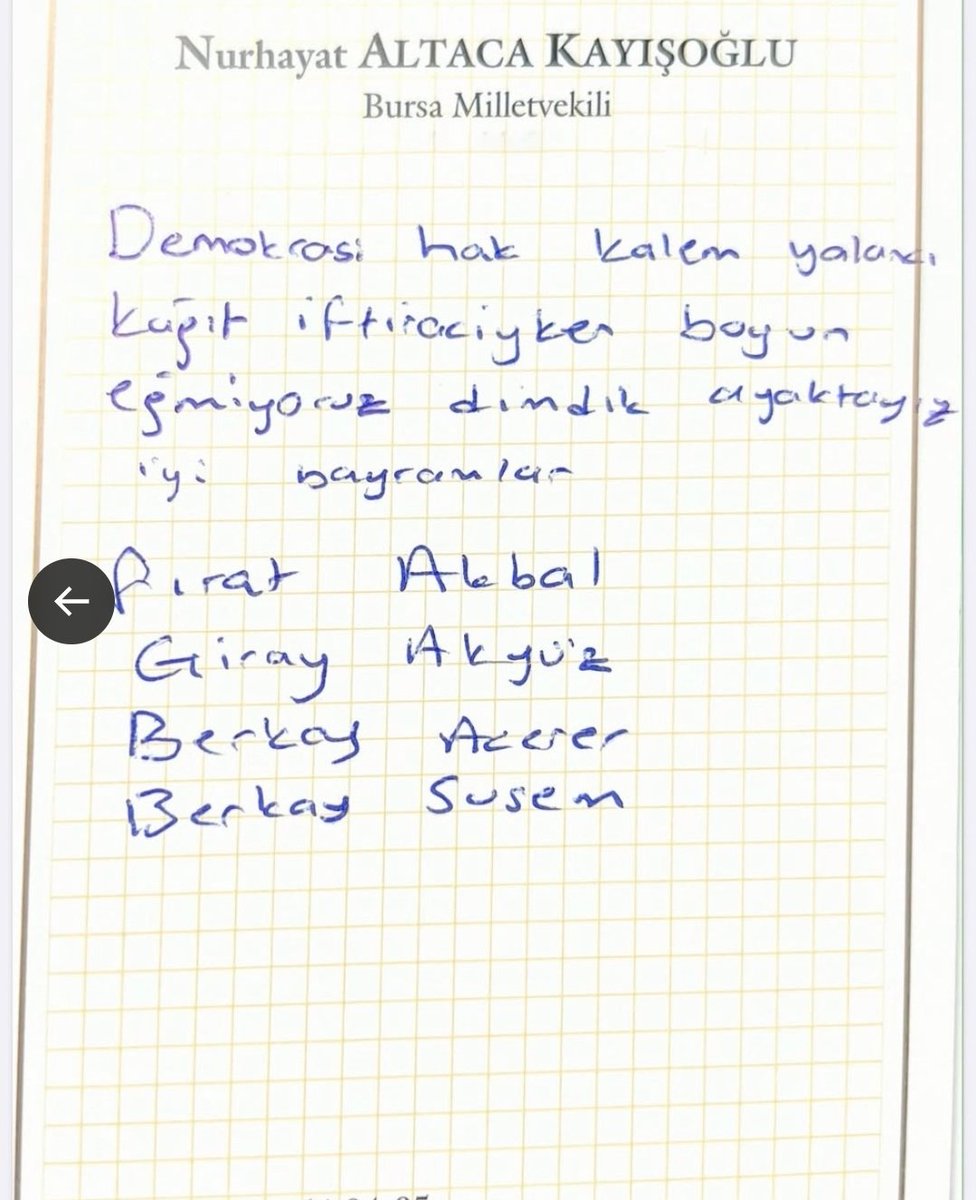 Nurhayat ALTACA KAYIŞOĞLU
Bursa Milletvekili
Demokrasi hak kalem yalancı
kağıt iftiraciyken boyun
eğmiyoruz dimdik ayaktayız
iyi bayramlar
Fırat Akbal
Giray Akyüz
Berkay
Berkay Susem